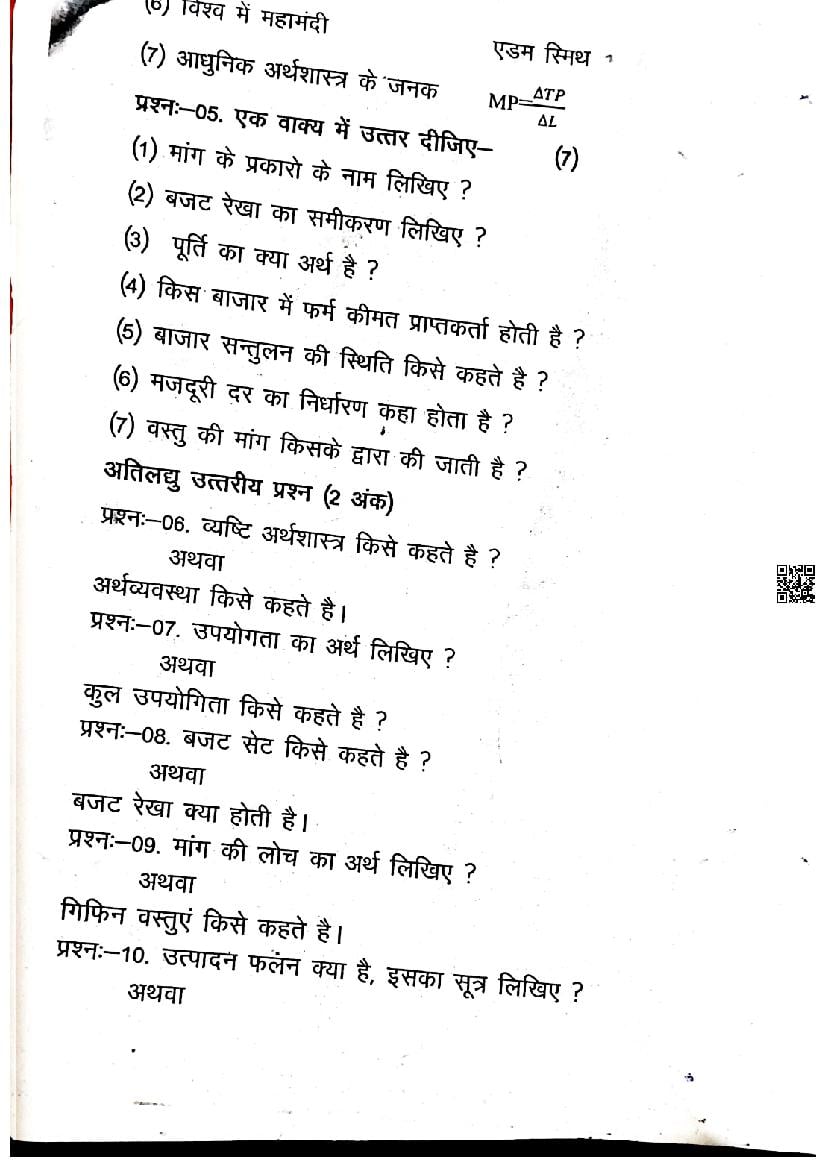 (6) विश्व में महामंदी
एडम स्मिथ
(7) आधुनिक अर्थशास्त्र के जनक
MP=ΔTP/ΔL
प्रश्नः–05. एक वाक्य में उत्तर दीजिए– (7)
(1) मांग के प्रकारो के नाम लिखिए ?
(2) बजट रेखा का समीकरण लिखिए ?
(3) पूर्ति का क्या अर्थ है ?
(4) किस बाजार में फर्म कीमत प्राप्तकर्ता होती है ?
(5) बाजार सन्तुलन की स्थिति किसे कहते है ?
(6) मजदूरी दर का निर्धारण कहा होता है ?
(7) वस्तु की मांग किसके द्वारा की जाती है ?
अतिलद्यु उत्तरीय प्रश्न (2 अंक)
प्रश्नः–06. व्यष्टि अर्थशास्त्र किसे कहते है ?
अथवा
अर्थव्यवस्था किसे कहते है।
प्रश्नः–07. उपयोगता का अर्थ लिखिए ?
अथवा
कुल उपयोगिता किसे कहते है ?
प्रश्नः–08. बजट सेट किसे कहते है ?
अथवा
बजट रेखा क्या होती है।
प्रश्नः–09. मांग की लोच का अर्थ लिखिए ?
अथवा
गिफिन वस्तुएं किसे कहते है।
प्रश्नः–10. उत्पादन फलन क्या है, इसका सूत्र लिखिए ?
अथवा